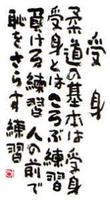 受身
柔道の基本は受身
受身とはころぶ練習
負ける練習 人の前で
恥をさらす練習